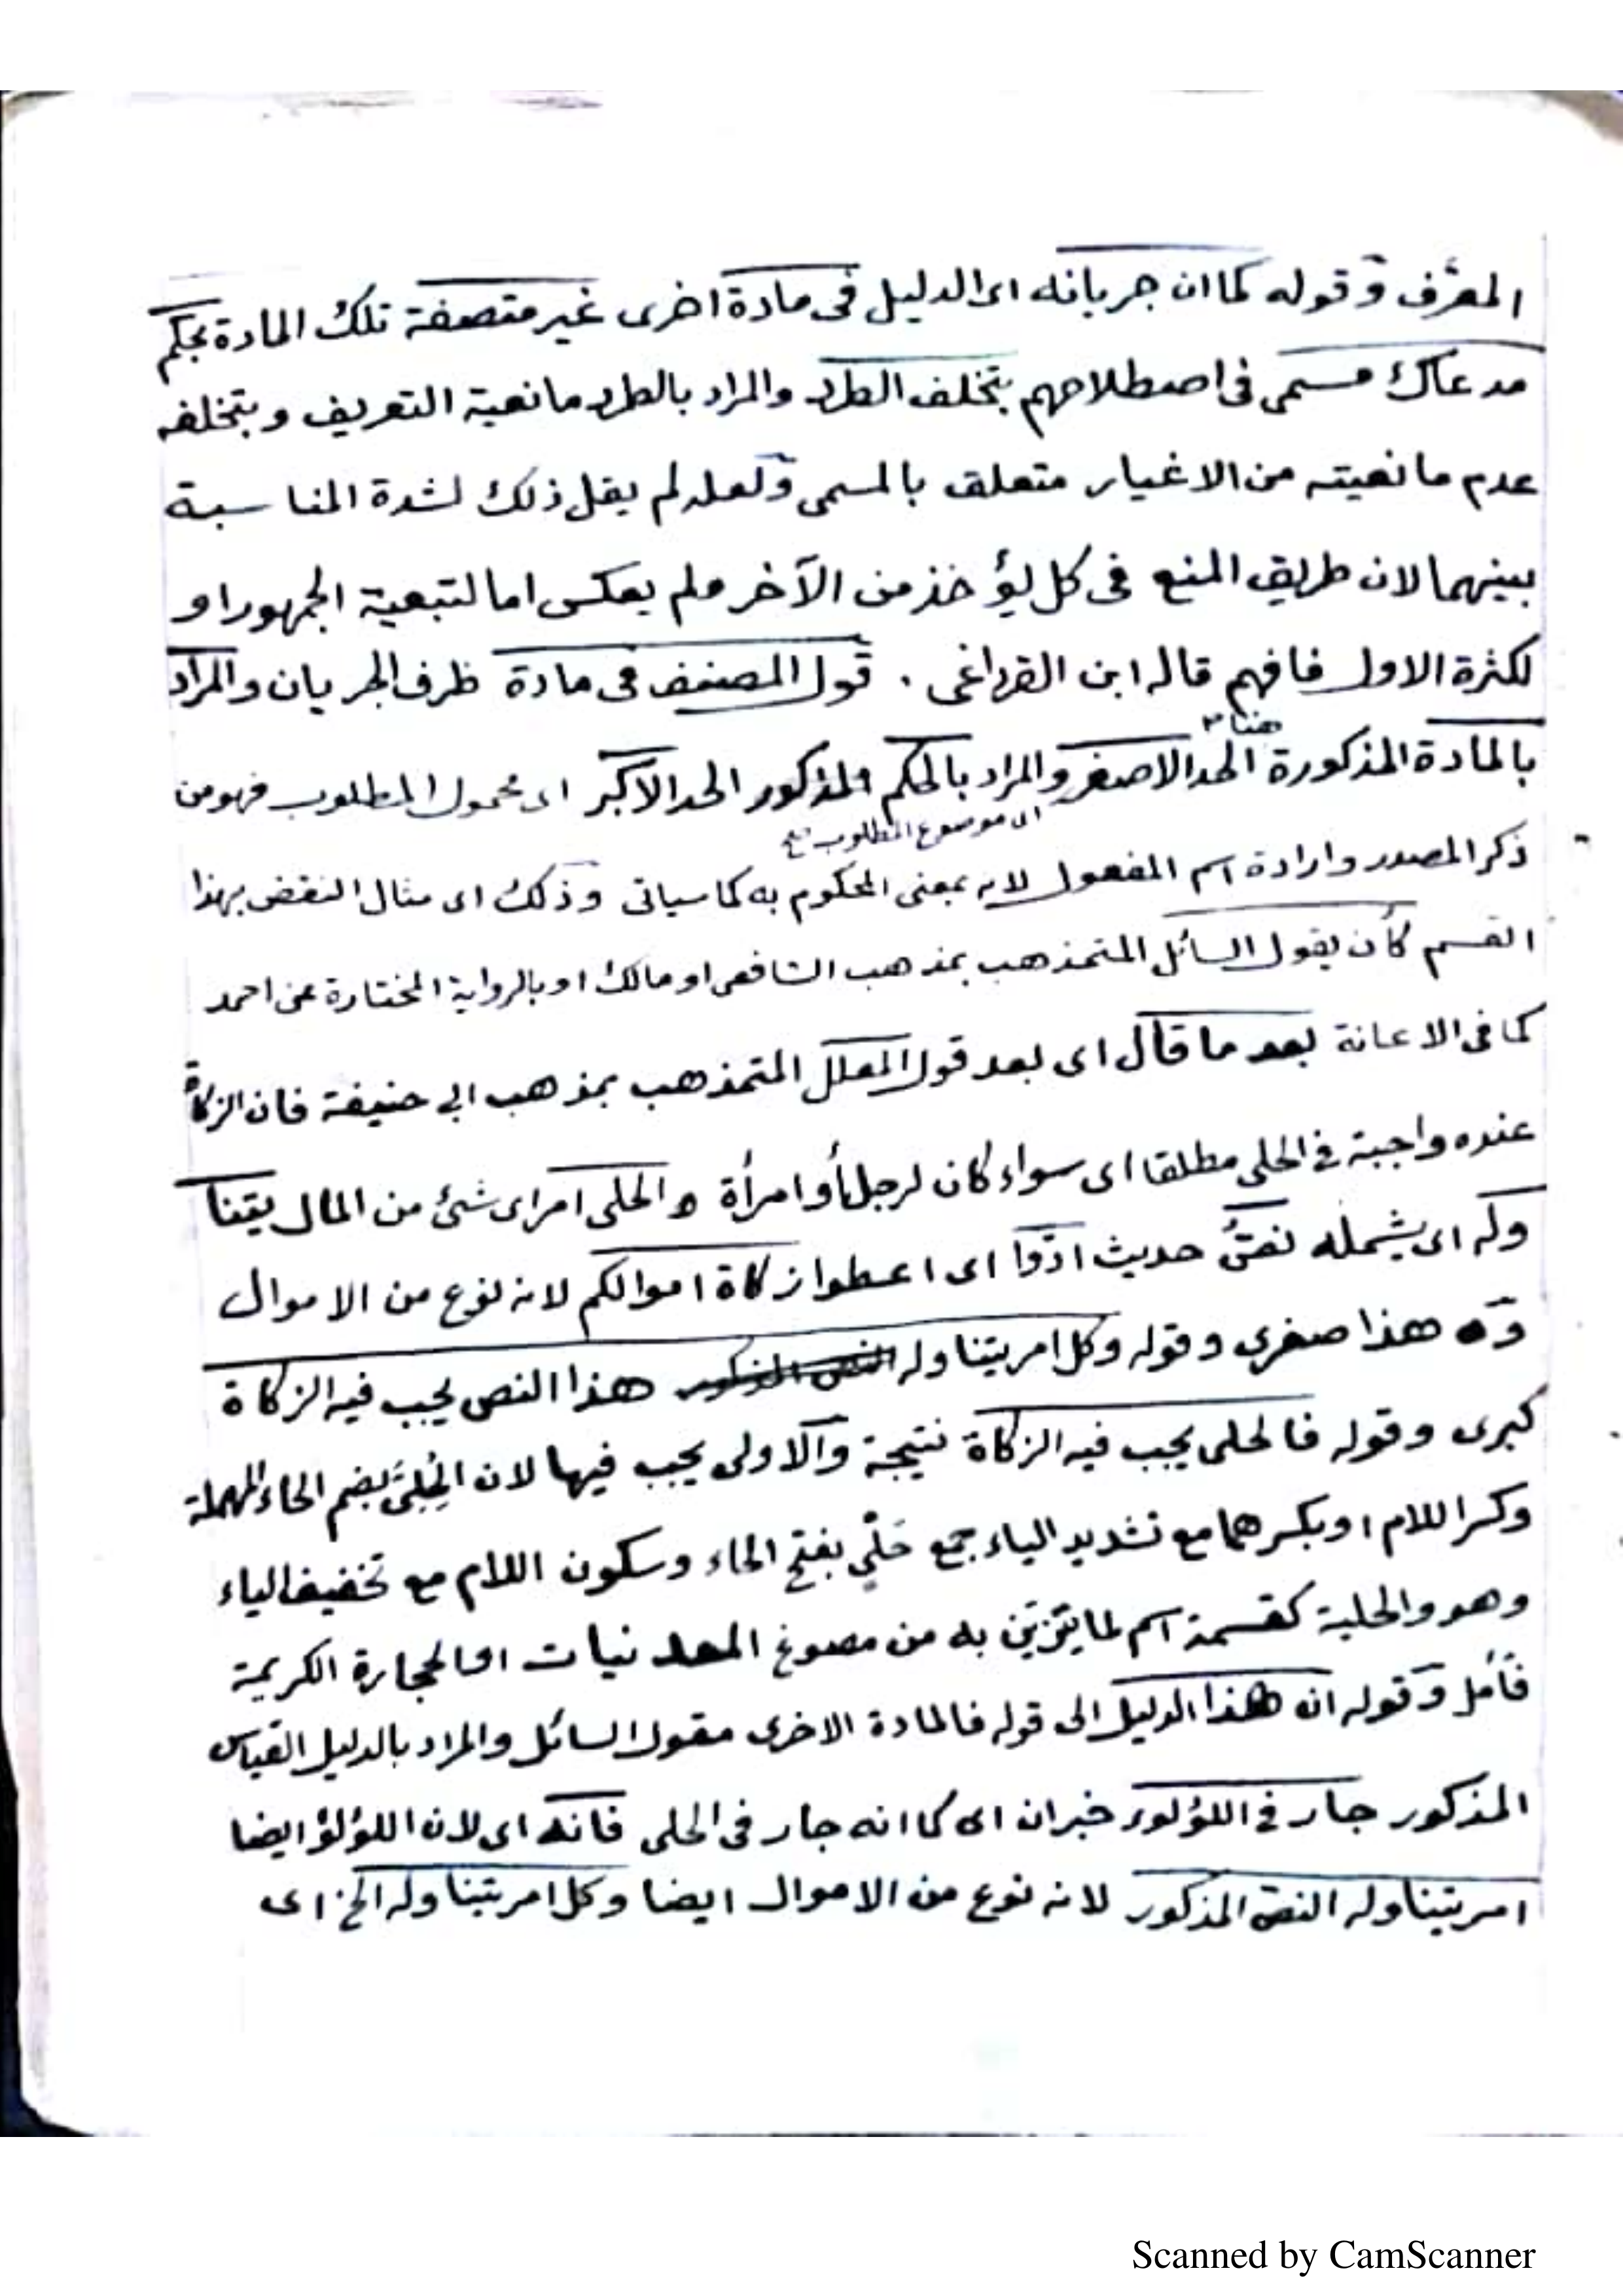 المعرَّف وقوله كما ان جريانه اى الدليل فى مادة اخرى غير متصفة تلك المادة بحكم
مدعاك مسمى فى اصطلاحهم بتخلف الطرد والمراد بالطرد مانعية التعريف وبتخلفه
عدم مانعيته من الاغيار متعلق بالمسمى ولعله لم يقل ذلك لشدة المناسبة
بينهما لان طريق المنع فى كل يؤخذ من الآخر ولم يعكس اما لتبعية الجمهور او
لكثرة الاول فافهم قاله ابن القرداغى . قول المصنف فى مادة ظرف الجريان والمراد
هنا
بالمادة المذكورة الحد الاصغر والمراد بالحكم المذكور الحد الاكبر اى محمول المطلوب فهو من
اى موضوع المطلوب
ذكر المصدر وارادة اسم المفعول لانه بمعنى المحكوم به كما سياتى وذلك اى مثال النقض بهذا
القسم كأن يقول السائل المتمذهب بمذهب الشافعى او مالك او بالرواية المختارة عن احمد
كما فى الاعانة بعد ما قال اى بعد قول المعلل المتمذهب بمذهب ابى حنيفة فان الزكاة
عنده واجبة فى الحلى مطلقا اى سواء كان لرجل أو امرأة والحلى امر اى شئ من المال يتنا
وله اى يشمله نصُّ حديث ادّوا اى اعطوا زكاة اموالكم لانه نوع من الاموال
وه هذا صغرى وقوله وكل امر يتناوله هذا النص يجب فيه الزكاة
كبرى وقوله فالحلى يجب فيه الزكاة نتيجة والاولى يجب فيها لان الحُلِىَّ بضم الحاء المهملة
وكسر اللام او بكسرهما مع تشديد الياء جمع حَلْي بفتح الحاء وسكون اللام مع تخفيف الياء
وهو والحلية كقسمة اسم لما يتزين به من مصوغ المعدنيات او الحجارة الكريمة
فأمل وقوله ان هذا الدليل الى قوله فالمادة الاخرى مقول السائل والمراد بالدليل القياس
المذكور جار فى اللؤلوء خبر ان اى كما انه جار فى الحلى فانه اى لان اللؤلؤ ايضا
امر يتناوله النص المذكور لانه نوع من الاموال ايضا وكل امر يتناوله الخ اى
Scanned by CamScanner